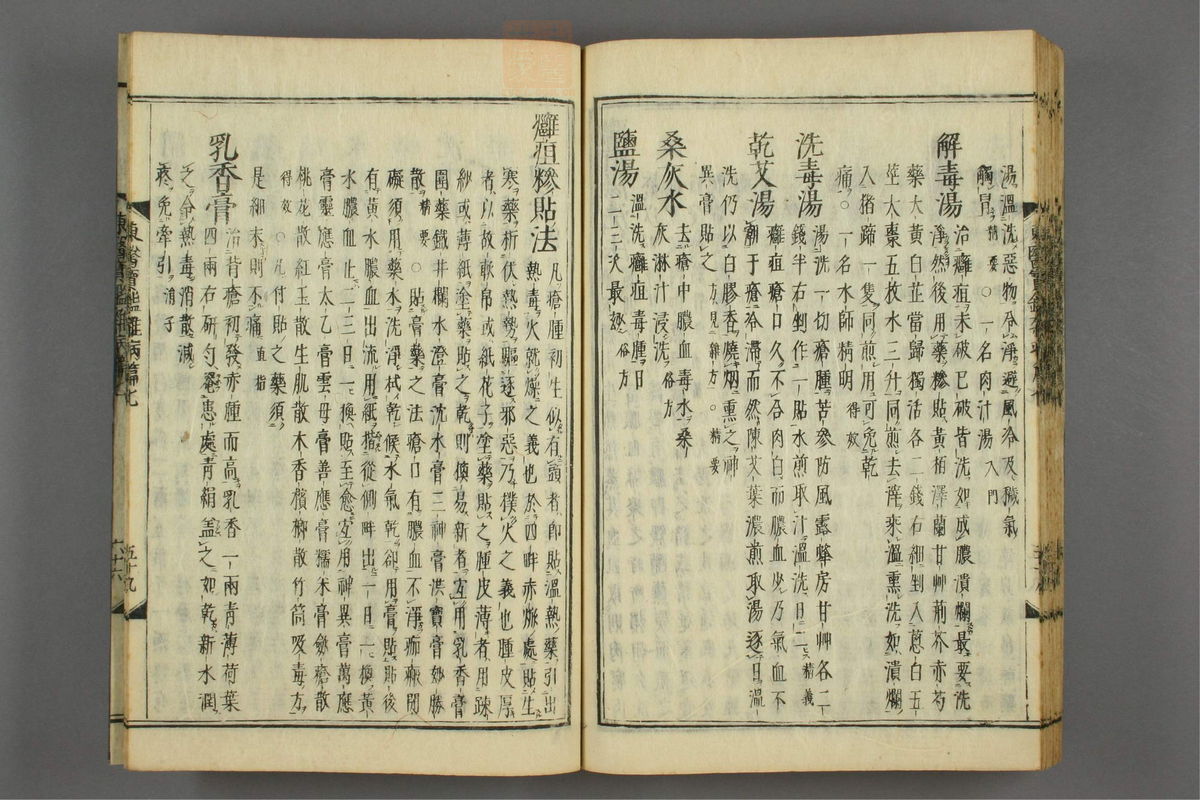 湯溫洗惡物令淨避風冷及穢氣
觸冒精要○一名肉汁湯入門
解毒湯 治癰疽未破已破皆洗如成膿潰爛最要洗
淨然後用藥糝貼黃栢澤蘭甘艸荊芥赤芍
藥大黃白芷當歸獨活各二錢右細剉入葱白五
莖大棗五枚水三升同煎去滓乘溫熏洗如潰爛
入猪蹄一隻同煎用可免乾
痛○一名水師精明得效
洗毒湯 湯洗一切瘡腫苦參防風露蜂房甘艸各二
錢半右剉作一貼水煎取汁溫洗日二精義
乾艾湯 癰疽瘡口久不合肉白而膿血少乃氣血不
潮于瘡冷滯而然陳艾葉濃煎取湯逐日溫
洗仍以白膠香燒烟熏之神
異膏貼之方見雜方○精要
桑灰水 去瘡中膿血毒水桑
灰淋汁浸洗俗方
鹽湯 溫洗癰疽毒腫日
二三次最妙俗方
癰疽糝貼法 凡瘡腫初生似有頭者卽貼溫熱藥引出
熱毒火就燥之義也於四畔赤焮處貼生
寒藥折伏熱勢驅逐邪惡乃撲火之義也腫皮厚
者以故軟帛或紙花子塗藥貼之腫皮薄者用踈
紗或薄紙塗藥貼之乾則換易新者宜用乳香膏
圍藥鐵井欄水澄膏沈水膏三神膏洪寶膏妙勝
散精要○貼膏藥之法瘡口有膿血不淨痂瘢閉
礙須用藥水洗淨拭乾候水氣乾却用膏貼貼後
有黃水膿血出流用紙揩從側畔出一日一換黃
水膿血止二三日一換貼至愈宜用神異膏萬應
膏靈應膏太乙膏雲母膏善應膏糯米膏斂瘡散
桃花散紅玉散生肌散木香檳榔散竹筒吸毒方
得效○凡付貼之藥須
是細末則不痛直指
乳香膏 治背瘡初發赤腫而高乳香一兩靑薄荷葉
四兩右硏勻罨患處靑絹盖之如乾新水潤
之令熱毒消散減
疼免牽引涓子
東醫寶鑑雜病篇七
五十九